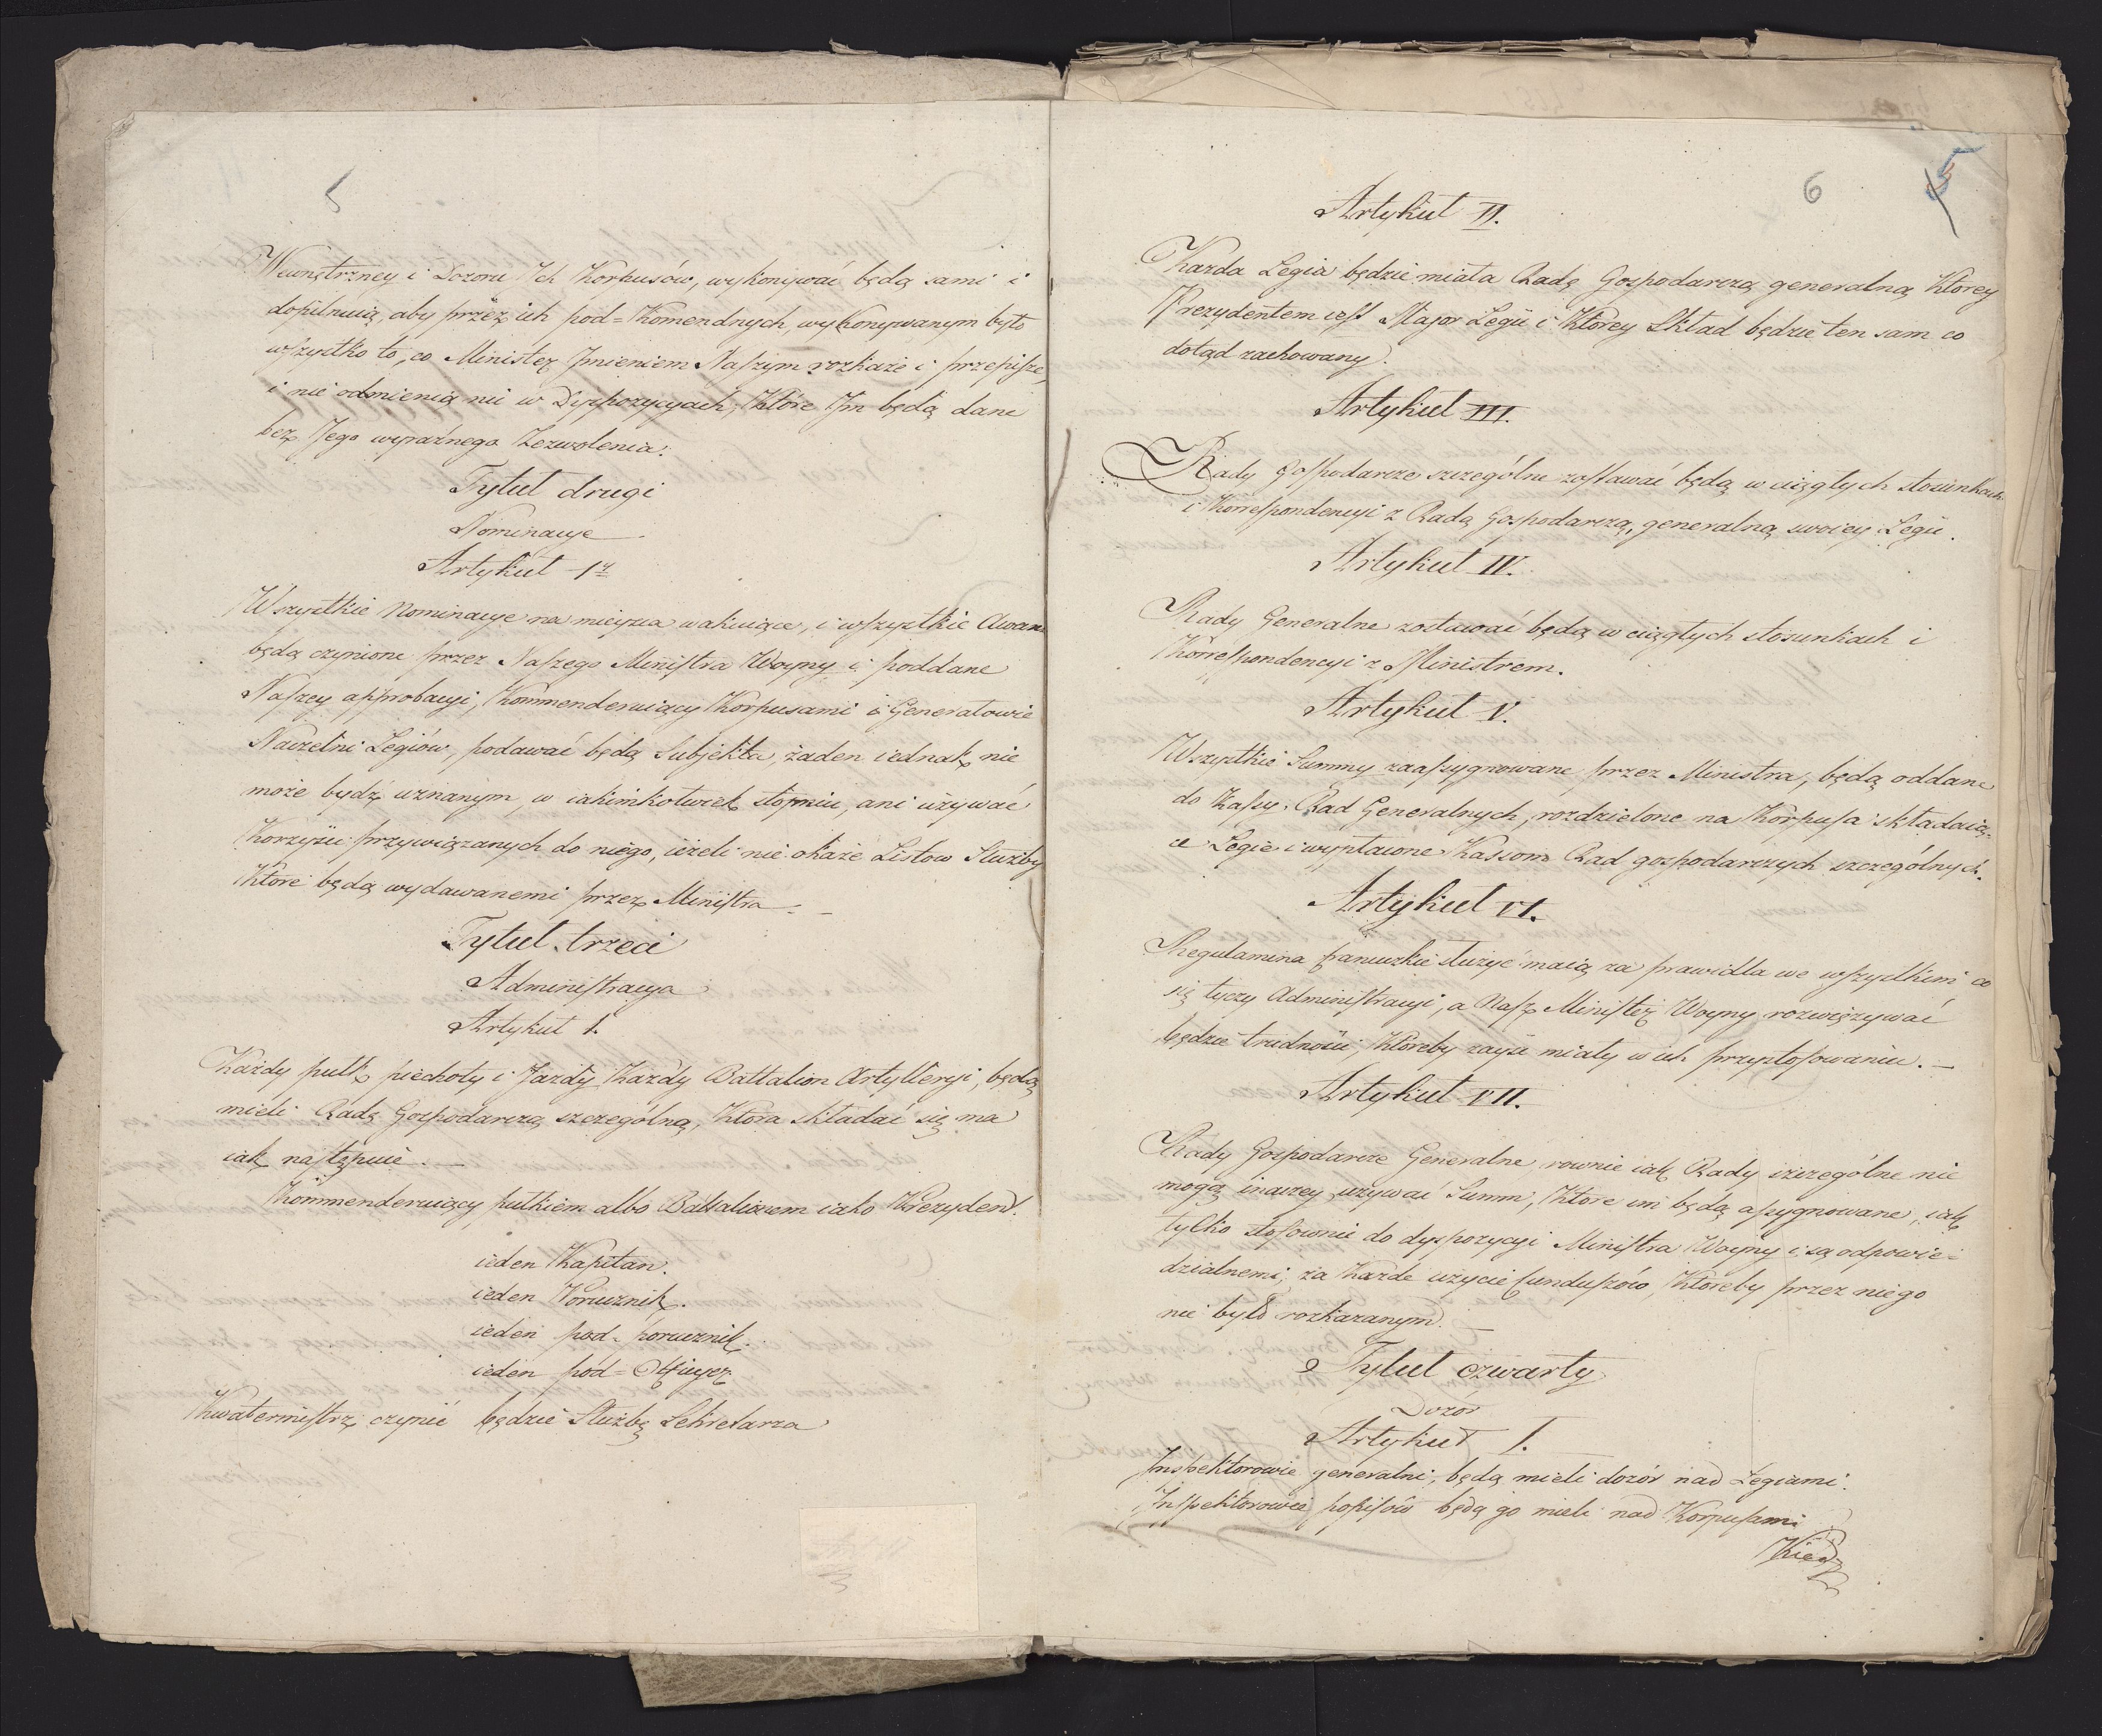 5
Wewnętrzney i Dozoru Ich Korpusów, wykonywać będą sami i
dopilnuią, aby przez ich pod=Komendnych, wykonywanym było
wszystko to, co Minister Imieniem Naszym rozkaże i przepisze,
i nie odmienią nic w Dyspozycyach, które Im będą dane
bez Jego wyraźnego Zezwolenia.
Tytuł drugi
Nominacye
Artykuł 1y
Wszystkie Nominacye na mieysca wakuiące, i wszystkie Awans
będą czynione przez Naszego Ministra Woyny i poddane
Naszey approbacyi, Kommenderuiący Korpusami i Generałowie
Naczelni Legiów, podawać będą Subjekta, żaden iednak nie
może bydź uznanym, w iakimkolwiek stopniu, ani używać
Korzyści przywiązanych do niego, ieżeli nie okaże Listow Służby
Które będą wydawanemi przez Ministra. –
Tytuł trzeci
Administracya
Artykuł 1.
Każdy pułk piechoty i Jazdy, Każdy Battalion Artylleryi, będą
mieli Radę Gospodarczą szczególną, Która składać się ma
iak następuie. —
Kommenderuiący pułkiem albo Battalionem iako Prezydent.
ieden Kapitan.
ieden Porucznik.
ieden pod=porucznik.
ieden pod=Officyer
Kwatermistrz czynić będzie Służbę Sekretarza
6
5
Artykuł II.
Karda Legia będzie miała Radę Gospodarczą generalną Ktorey
Prezydentem iest Major Legii i Którey Skład będzie ten sam co
dotąd zachowany.
Artykuł III.
Rady Gospodarcze szczególne zostawać będą w ciągłych stosunkach
i Korrespondencyi z Radą Gospodarczą, generalną swoiey Legii.
Artykuł IV.
Rady Generalne zostawać będą w ciągłych stosunkach i
Korrespondencyi z Ministrem.
Artykuł V.
Wszystkie Summy zaassygnowane przez Ministra, będą oddane
do Kassy Rad Generalnych, rozdzielone na Korpusa składaią=
ce Legie i wypłacone Kassom Rad gospodarczych szczególnych.
Artykuł VI.
Regulamina francuzkie służyć maią za prawidła we wszystkim co
się tyczy Administracyi, a Nasz Minister Woyny rozwięzywać
będzie trudności, Któreby zayść miały w ich przystosowaniu. —
Artykuł VII.
Rady Gospodarcze Generalne, rownie iak Rady szczególne nie
mogą inaczey używać Summ, Ktore im będą assygnowane, iak
tylko stosownie do dyspozycyi Ministra Woyny i są odpowie=
dzialnemi, za Karde użycie funduszów, Ktoreby przez niego
nie było rozkazanym. —
Tytuł czwarty
Dozór
Artykuł I.
Inspektorowie generalni, będą mieli dozór nad Legiami.
Inspektorowie popisów będą go mieli nad Korpusami
Kied